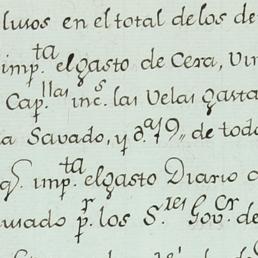 lusos en el total de los de
imp.ta el gasto de Cera, Vin
Cap.llas inc.s las Velas gasta
a Savado, y
de todo
q.e imp.ta el gasto Diario
usado p.r los S.res Gov.or de